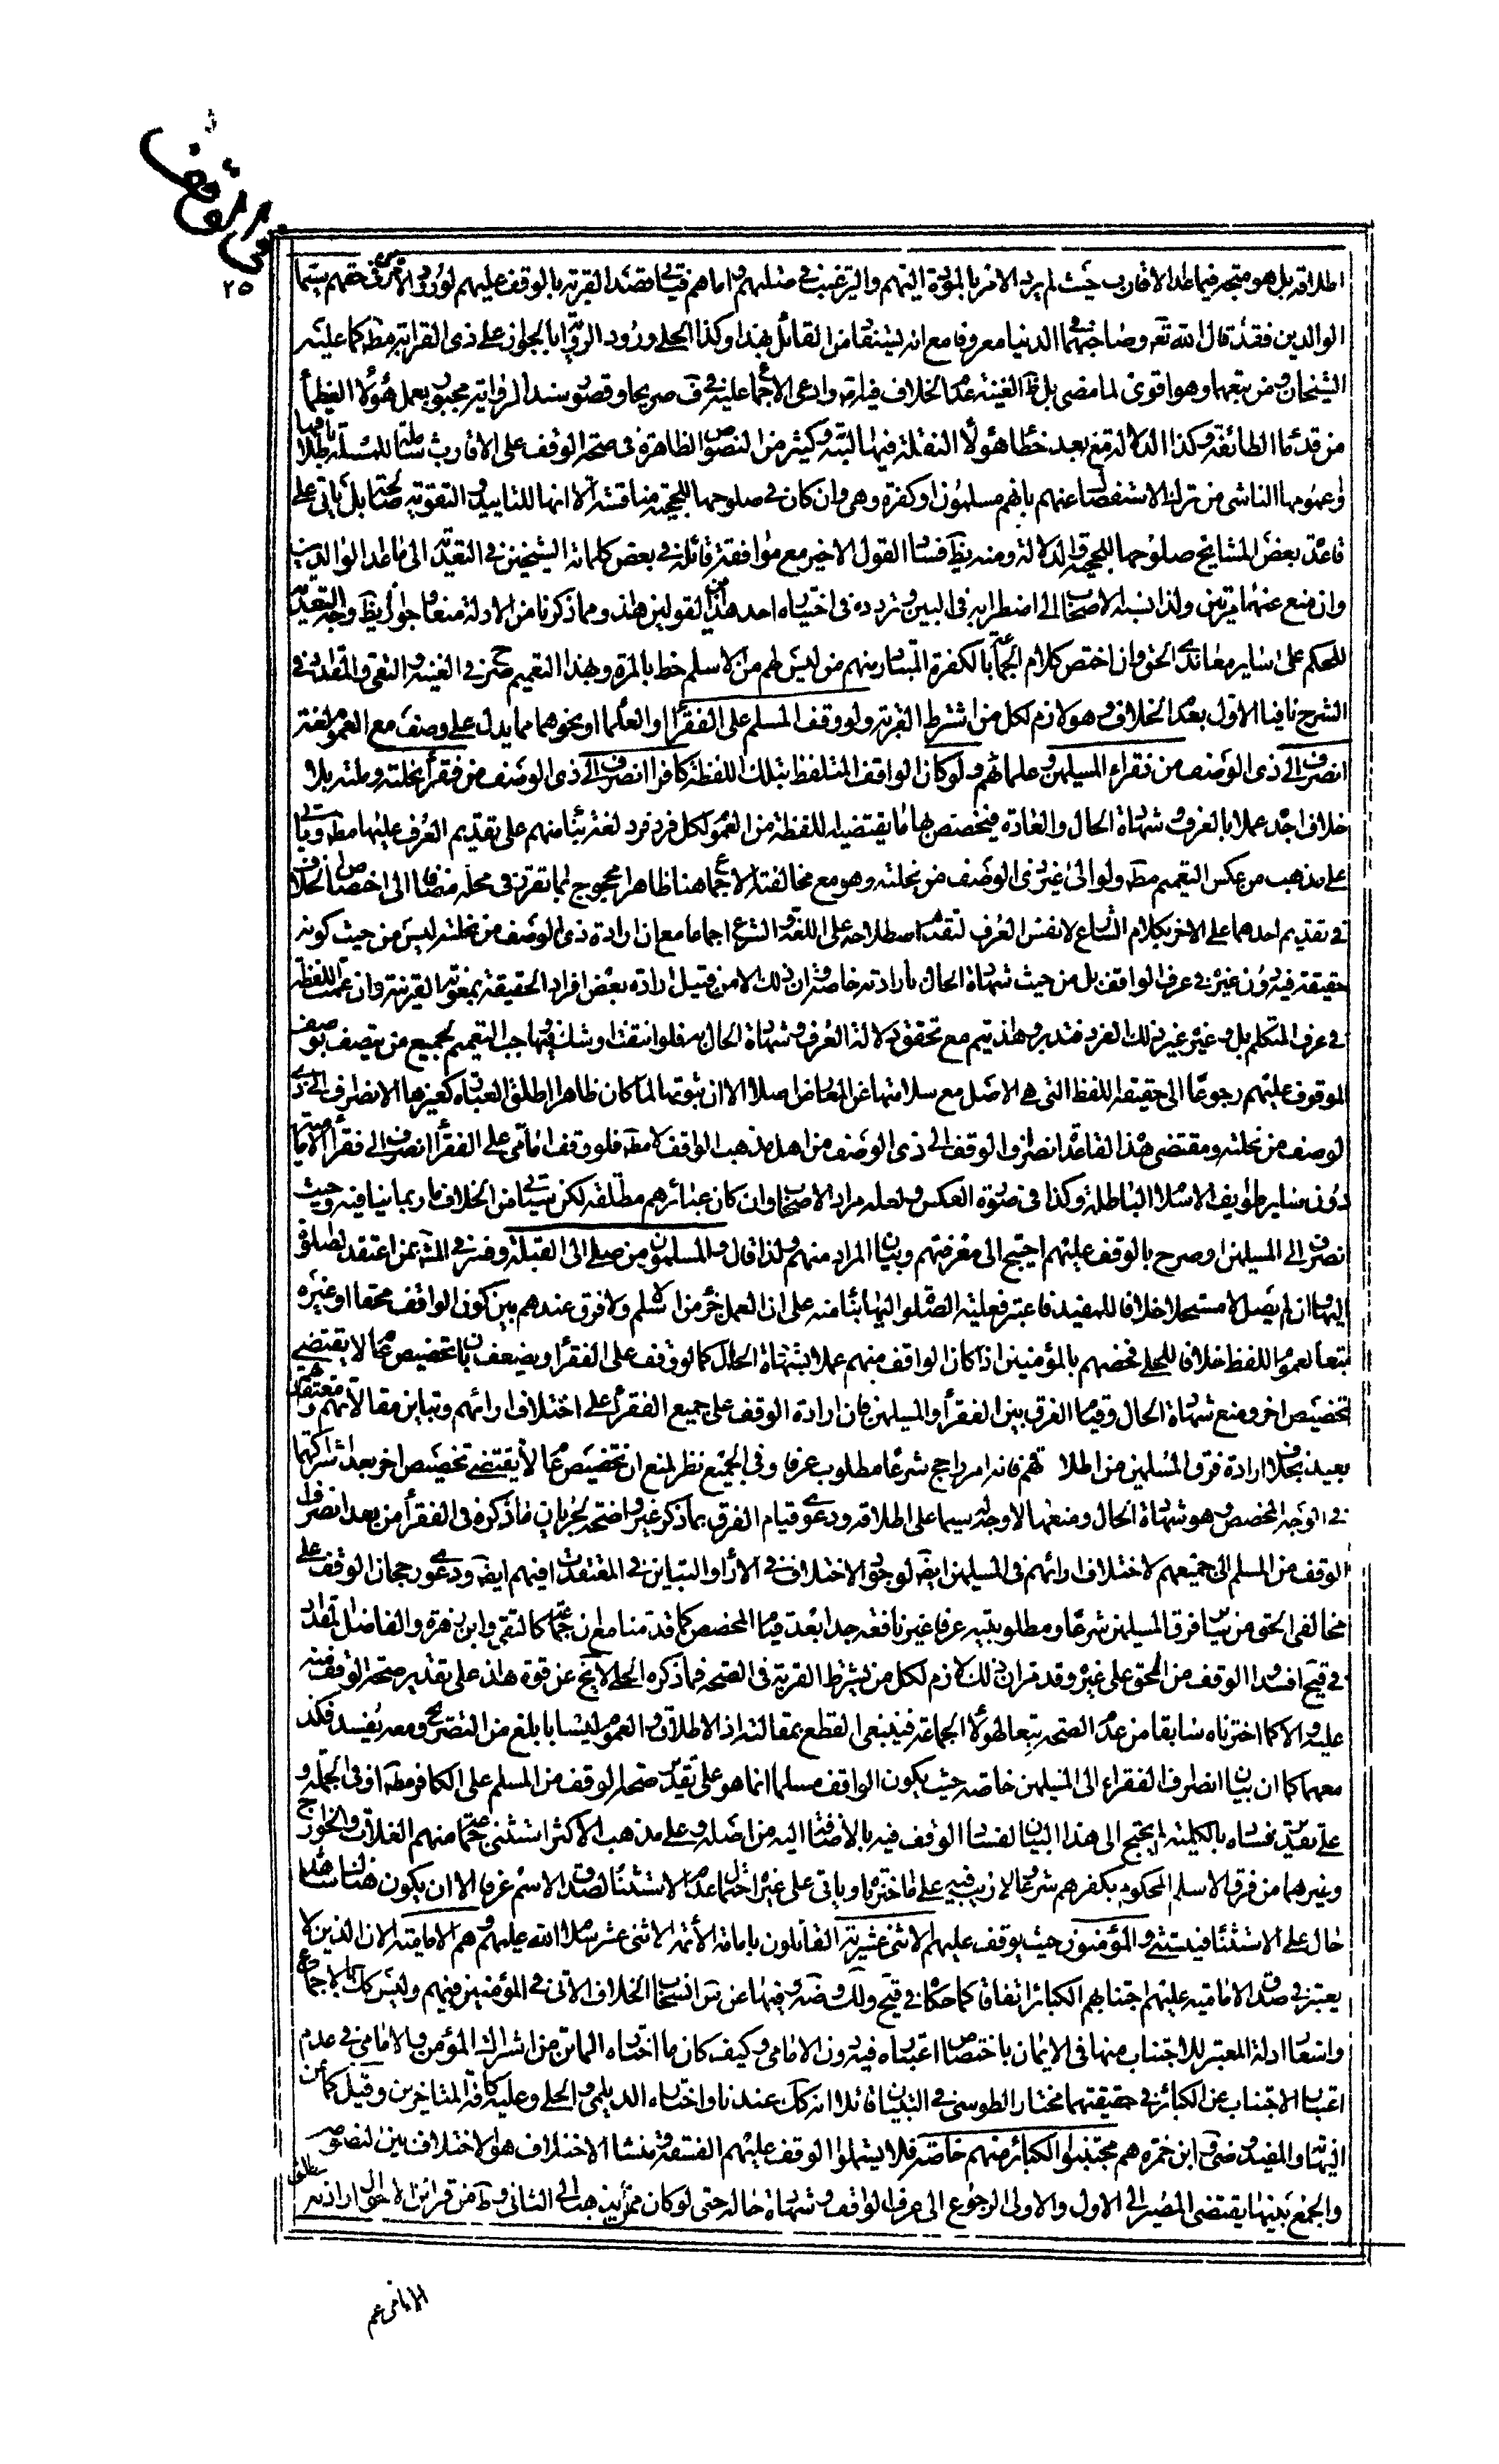 في الوقف
٢٥
اطلاقه بل هو متجه فيما عدا الاقارب حيث لم يرد الامر بالمودة اليهم والترغيب في صلتهم واما هم فيتاتى قصد القربة بالوقف عليهم لورود الامر في حقهم سيما
الوالدين فقد قال الله تعه وصاحبهما في الدنيا معروفا مع انه لم ينقل من القائل بهذا وكذا الحلي ورود الرواية بالجواز على ذي القرابة مطه كما عليه
الشيخان ومن تبعهما وهو اقوى لما مضى بل ظ الغنية عدم الخلاف فيه وادعى الاجماع عليه في ف صريحا وقصور سند الرواية مجبور بعمل هؤلاء العظماء
من قدماء الطائفة وكذا الدلالة مع بعد خطا هؤلاء النقلة فيها البتة وكثير من النصوص الظاهرة في صحة الوقف على الاقارب شاملة للمسئلة باطلاقها
وعمومها الناشي من ترك الاستفصال عنهم بانهم مسلمون او كفرة وهي وان كان في صلوحها للحجية مناقشة الا انها للتاييد والتقوية صالحة بل ياتى على
قاعدة بعض المشايخ صلوحها للحجية والدلالة ومنه يظ فساد القول الاخير مع موافقة قائله في بعض كلماته الشيخين في التعدية الى ما عدا الوالدين
وان منع عنهما مرتين ولذا نسبه الاصحاب الى اضطرابه في البين وتردده في اختياره احد هذين القولين هذا ومما ذكرنا من الادلة منعا وجوازا يظ وجه التعدية
للحكم على ساير معاندي الحق وان اختص كلام الجماعة بالكفرة المتبادر منهم من ليس لهم من الاسلم حظ بالمرة وبهذا التعميم صرح في الغنية والتقي والمقداد في
الشرح نافيا الاول بعد الخلاف وهو لازم لكل من اشترط القربة ولو وقف المسلم على الفقراء او العلماء او نحوهما مما يدل على وصف مع العموم لغة
انصرف الى ذي الوصف من فقراء المسلمين وعلمائهم ولو كان الواقف المتلفظ بتلك اللفظة كافرا انصرف الى ذي الوصف من فقراء نحلته وملته بلا
خلاف اجده عملا بالعرف وشهادة الحال والعادة فيخصص بها ما يقتضيه اللفظة من العموم لكل فرد فرد لغة بناء منهم على تقديم العرف عليها مطه وياتى
على مذهب من عكس التعميم مطه ولو الى غير ذي الوصف من نحلته وهو مع مخالفته الاجماع هنا ظاهرا محجوج بما تقرر في محله مضافا الى اختصاص الخلاف
في تقديم احدهما على الاخر بكلام الشارع لا نفس العرف لتقدم اصطلاحه على اللغة والشرع اجماعا مع ان ارادة ذي الوصف من نحلته ليس من حيث كونه
حقيقة فيه دون غيره في عرف الواقف بل من حيث شهادة الحال بارادته خاصة وان ذلك الا من قبيل ارادة بعض افراد الحقيقة بمعونة القرينة وان عمت اللفظة
في عرف المتكلم بل وغيره غير ذلك الفرد فتدبر وهذا يتم مع تحقق دلالة العرف وشهادة الحال به فلو انتفتا وشك فيها وجب التعميم لجميع من يتصف بوصف
الموقوف عليهم رجوعا الى حقيقة اللفظ التي هي الاصل مع سلامتها عن المعارض اصلا الا ان ثبوتها لما كان ظاهرا اطلق العبارة كغيرها الانصراف الى ذي
الوصف من نحلته ومقتضى هذه القاعدة انصراف الوقف الى ذي الوصف من اهل مذهب الواقف لا مطه فلو وقف امامي على الفقراء انصرف الى فقراء الامامية
دون ساير طوايف الاسلام الباطلة وكذا في صورة العكس ولعله مراد الاصحاب وان كان عبائرهم مطلقة لكن سياتى من الخلاف ما ربما ينافيه وحيث
انصرف الى المسلمين او صرح بالوقف عليهم احتيج الى معرفتهم وبيان المراد منهم ولذا قال والمسلمون من صلى الى القبلة وفسر في المشه بمن اعتقد الصلوة
اليها وان لم يصل لا مستحلا خلافا للمفيد فاعتبر فعلية الصلوة اليها بناء منه على ان العمل جزء من الاسلم ولا فرق عندهم بين كون الواقف محقا او غيره
تبعا لعموم اللفظ خلافا للحلي فخصهم بالمؤمنين اذا كان الواقف منهم عملا بشهادة الحال كما لو وقف على الفقراء ويضعف بان تخصيص عام لا يقتضي
تخصيص اخر ومنع شهادة الحال وقيام الفرق بين الفقراء والمسلمين فان ارادة الوقف على جميع الفقراء على اختلاف ارائهم وتباين مقالاتهم ومعتقداتهم
بعيد بخلاف ارادة فرق المسلمين من اطلاقهم فانه امر راجح شرعا مطلوب عرفا وفي الجميع نظر لمنع ان تخصيص عام لا يقتضي تخصيص اخر بعد اشراكهما
في الوجه المخصص وهو شهادة الحال ومنعها لا وجه له سيما على اطلاقه ودعوى قيام الفرق بما ذكر غير واضحة لجريان ما ذكره في الفقراء من بعد انصراف
الوقف من المسلم الى جميعهم لاختلاف ارائهم في المسلمين ايضه لوجود الاختلاف في الاراء والتباين في المعتقدات فيهم ايضه ودعوى رجحان الوقف على
مخالفي الحق من ساير فرق المسلمين شرعا ومطلوبيته عرفا غير نافعة جدا بعد قيام المخصص كما قدمنا مع ان جماعة كالتقي وابن زهرة والفاضل المقداد
في قيح افسدوا الوقف من المحق على غيره وقد مر ان ذلك لازم لكل من يشترط القربة في الصحة فما ذكره الحلي لا يخ عن قوة هذا على تقدير صحة الوقف منه
عليه والا كما اخترناه سابقا من عدم الصحة تبعا لهؤلاء الجماعة فينبغي القطع بمقالته اذ الاطلاق والعموم ليسا بابلغ من التصريح ومعه يفسد فكذا
معهما كما ان بيان انصراف الفقراء الى المسلمين خاصة حيث يكون الواقف مسلما انما هو على تقدير صحة الوقف من المسلم على الكافر مطه او في الجملة و
على تقدير فساده بالكلية لم يحتج الى هذا البيان لفساد الوقف فيه بالاضافة اليه من اصله وعلى مذهب الاكثر استثنى جماعة منهم الغلاة والخوارج
وغيرهما من فرق الاسلم المحكوم بكفرهم شرعا ولا ريب فيه على ما اخترناه وياتى على غيره احتمال عدم الاستثناء لصدق الاسم عرفا الا ان يكون هناك شاهد
حال على الاستثناء فيستثنى والمؤمنون حيث يوقف عليهم الاثنى عشرية القائلون بامامة الأئمة الاثنى عشر سلام الله عليهم وهم الامامية الان الذين لا
يعتبر في صدق الامامية عليهم اجتنابهم الكبائر اتفاقا كما حكاه في قيح ولك وضه وفيها عن س انسحاب الخلاف الآتى في المؤمنين فيهم وليس كك بالاجماع
واشعار ادلة المعتبر للاجتناب منها في الايمان باختصاص اعتباره فيه دون الامامي وكيف كان ما اختاره الماتن من اشراك المؤمن والامامي في عدم
اعتبار الاجتناب عن الكبائر في حقيقتهما مختار الطوسي في التبيان قائلا انه كك عندنا واختاره الديلمي والحلي وعليه كافة المتاخرين وقيل كما عن
النهاية والمفيد وضي وابن حمزة هم مجتنبوا الكبائر منهم خاصة فلا يشملوا الوقف عليهم الفسقة ومنشا الاختلاف هو الاختلاف بين النصوص
والجمع بينها يقتضي المصير الى الاول والاولى الرجوع الى عرف الواقف وشهادة حاله حتى لو كان ممن يذهب الى الثانى وظ من قرائن الاحوال ارادته مطلق
الامامي عم